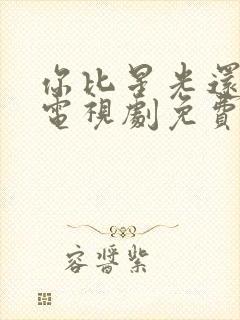 你比星光還
電視劇免費
容嘗紫